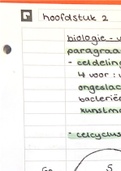 hoofdstuk 2
biologie - v
paragraa
- celdeling
4 voor:
ongeslac
bacterië
kunstma
- celcyclus